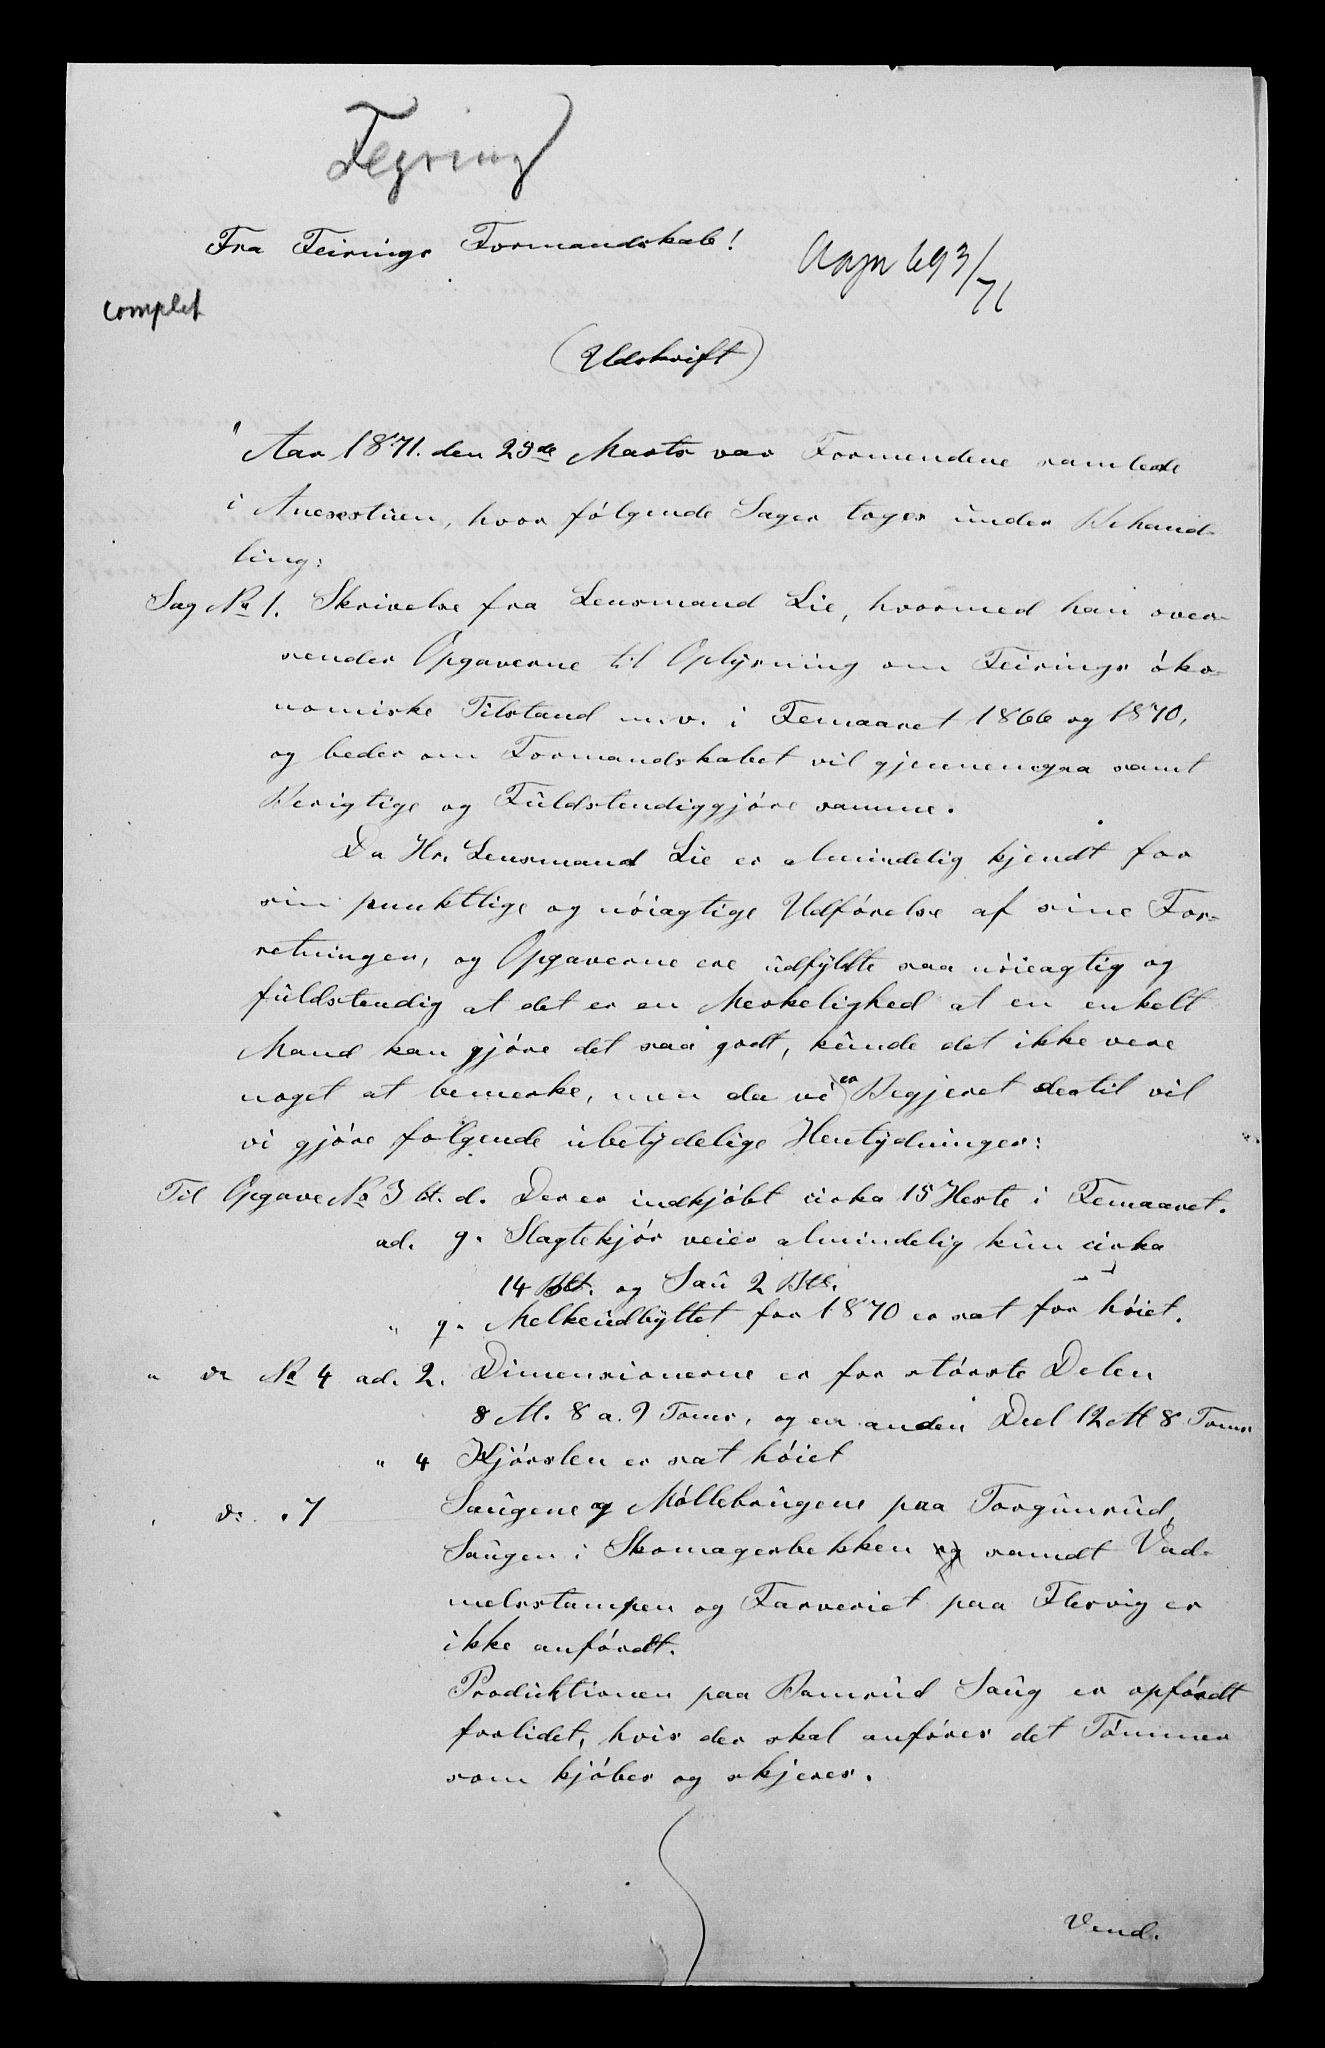 Feyring
Fra Feirings Formandskab!
693/71
complet
(Udskrift)
"Aar 1871. den 23de Marts var Formendene samlede
i Anexstuen, hvor følgende Sager toges under Behand-
ling:
Sag No 1. Skrivelse fra Lensmand Lie, hvormed han over-
sender Opgaverne til Oplysning om Feirings øko-
nomiske Tilstand m.v. i Femaaret 1866 og 1870,
og beder om Formandskabet vil gjennemgaa samt
Berigtige og Fuldstendiggjøre samme.
Da Hr. Lensmand Lie er almindelig kjendt for
sin punktlige og nøiagtige Udførelse af sine For-
retninger, og Opgaverne ere udfyldte saa nøieagtig og
fuldstendig at det er en Merkelighed at en enkelt
Mand kan gjøre det saa godt, kunde det ikke vere
noget at bemerke, men da vi er Begjeret dertil vil
vi gjøre følgende ubetydelige Hentydninger:
Til Opgave No 3 Lit. d. Der er indkjøbt cirka 15 Heste i Femaaret.
ad. g. Slagtekjør veier almindelig kun cirka
14 B℔. og Sau 2 B℔.
" q. Melkeudbyttet for 1870 er sat for høiet.
" do No 4 ad. 2. Dimensionerne er for største Delen
8 Al. 8 a. 9 Toms, og en anden Deel 12 Al 8 Toms
" 4 Kjørslen er sat høiet
" do. " 7 Saugene og Møllebrugene paa Torgunrud,
Saugen i Skomagerbekken og samdt Vad-
melsstampen og Farveriet paa Flesvig er
ikke anførdt.
Produktionen paa Bamrud Saug er opførdt
forlidet, hvis der skal anføres det Tømmer
som kjøbes og skjeres.
Vend.